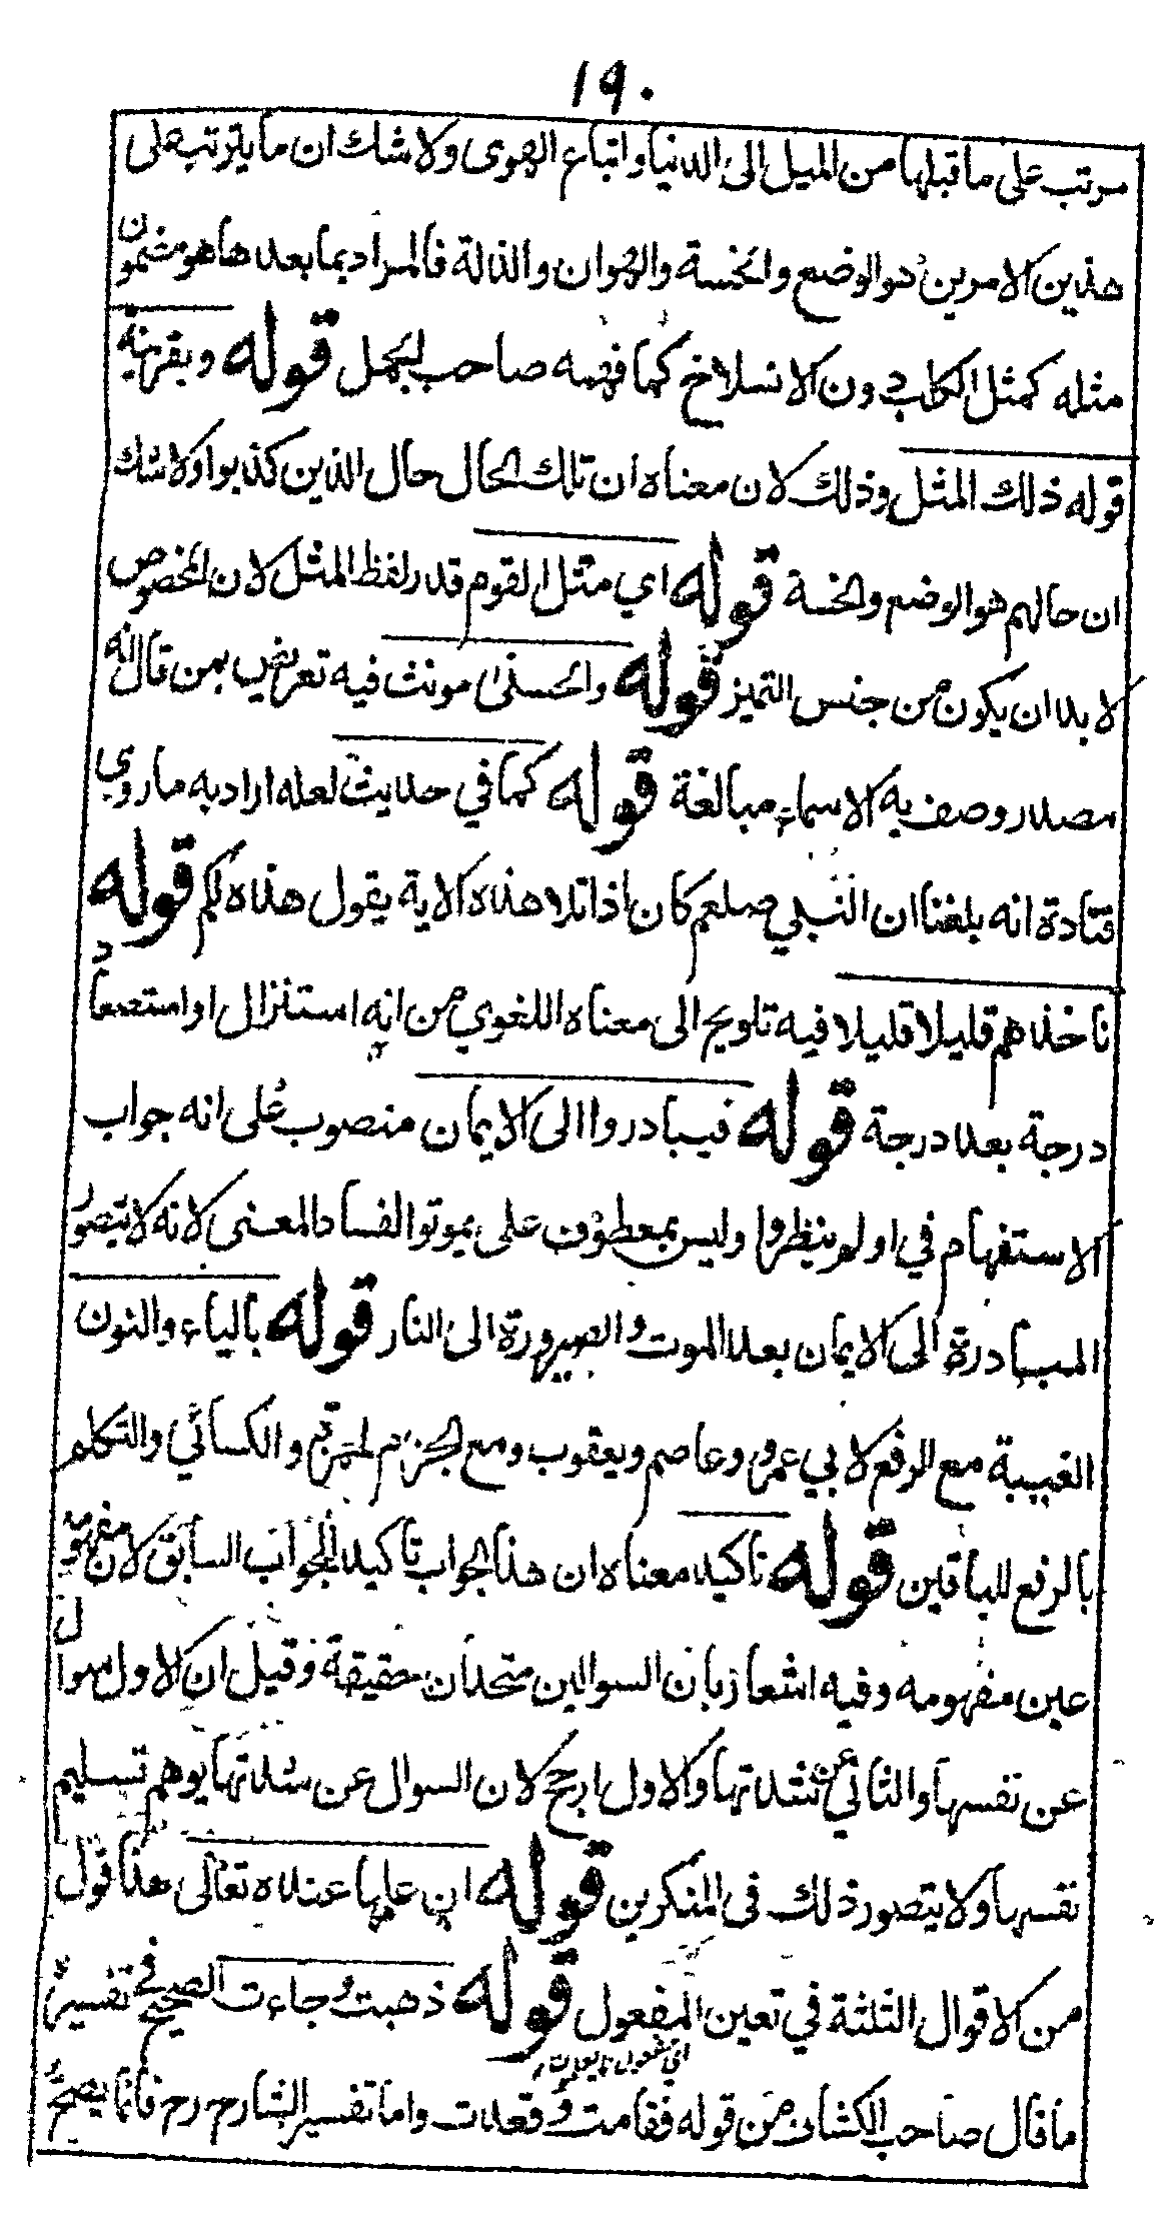 ١٩٠
مرتب على ما قبلها من الميل الى الدنيا واتباع الهوى ولا شك ان ما يترتب على
هذين الامرين هو الوضع والخسة والهوان والذلة فالمراد بما بعدها هو مضمون
مثله كمثل الكلب دون الانسلاخ كما فهمه صاحب الجمل قوله وبقرينة
قوله ذلك المثل وذلك لان معناه ان تلك الحال حال الذين كذبوا ولا شك
ان حالهم هو الوضع والخسة قوله اي مثل القوم قدر لفظ المثل لان المخصوص
لا بد ان يكون من جنس التميز قوله والحسنى مونث فيه تعريض بمن قال انه
مصدر وصف به الاسماء مبالغة قوله كما في حديث لعله اراد به ما روي
قتادة انه بلغنا ان النبي صلعم كان اذا تلا هذه الاية يقول هذه لكم قوله
ناخذهم قليلا قليلا فيه تلويح الى معناه اللغوي من انه استنزال او استصعاد
درجة بعد درجة قوله فيبادروا الى الايمان منصوب على انه جواب
الاستفهام في اولم ينظروا وليس بمعطوف على يموتوا لفساد المعنى لانه لا يتصور
المبادرة الى الايمان بعد الموت والصيرورة الى النار قوله بالياء والنون
الغيبة مع الرفع لابي عمرو وعاصم ويعقوب ومع الجزم لحمزة والكسائي والتكلم
بالرفع للباقين قوله تاكيد معناه ان هذا الجواب تاكيد للجواب السابق لان مفهومه
عين مفهومه وفيه اشعار بان السوالين متحدان حقيقة وقيل ان الاول سوال
عن نفسها والثاني عن شدتها والاول ارجح لان السوال عن شدتها يوهم تسليم
نفسها ولا يتصور ذلك في المنكرين قوله ان علمها عنده تعالى هذا قول
من الاقوال الثلثة في تعين المفعول قوله ذهبت وجاءت الصحيح في تفسيره
ما قال صاحب الكشاف من قوله فقامت وقعدت واما تفسير الشارح رح فانما يصح